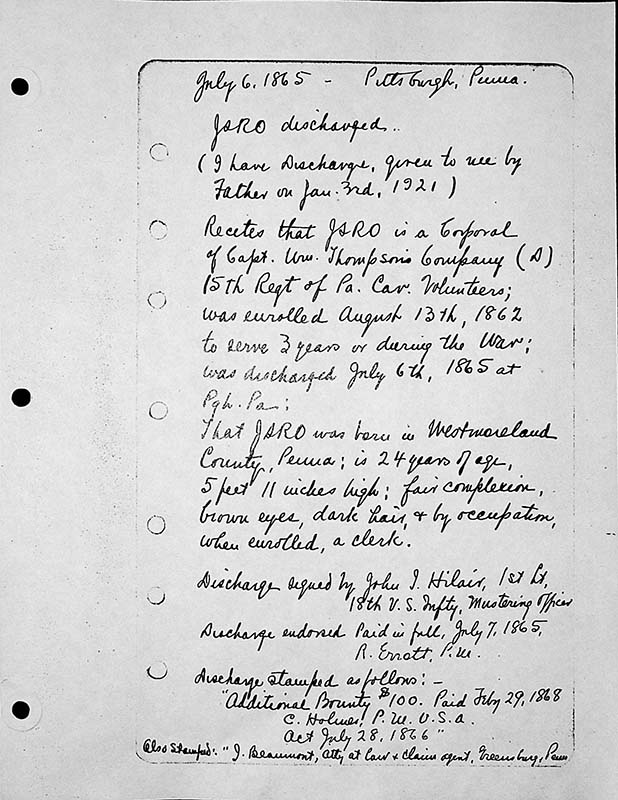 July 6, 1865 - Pittsburgh, Penna.
JARO discharged..
(I have Discharge, given to me by
Father on Jan. 3rd, 1921)
Recites that JARO is a Corporal
of Capt. Wm. Thompson's Company (A)
15th Regt of Pa. Cav. Volunteers;
was enrolled August 13th, 1862
to serve 3 years or during the War;
was discharged July 6th, 1865 at
Pgh. Pa.;
That JARO was born in Westmoreland
County, Penna; is 24 years of age,
5 feet 11 inches high; fair complexion,
brown eyes, dark hair, & by occupation,
when enrolled, a clerk.
Discharge signed by John I. Hilair, 1st Lt,
18th U.S. Infty, Mustering Officer
Discharge endorsed Paid in full, July 7, 1865,
R. Errett, P.M.
Discharge stamped as follows: -
"Additional Bounty $100. Paid Feby 29, 1868
C. Holmes, P.M. U.S.A.
Act July 28, 1866"
Also Stamped: "J. Beaumont, atty at law & claim agent, Greensburg, Penn